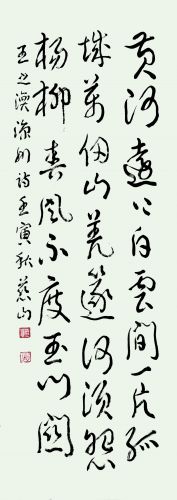 黄河遠上白雲間一片孤
城萬仞山羌篴何須怨
楊柳春風不度玉門關
王之渙涼州詩壬寅秋山